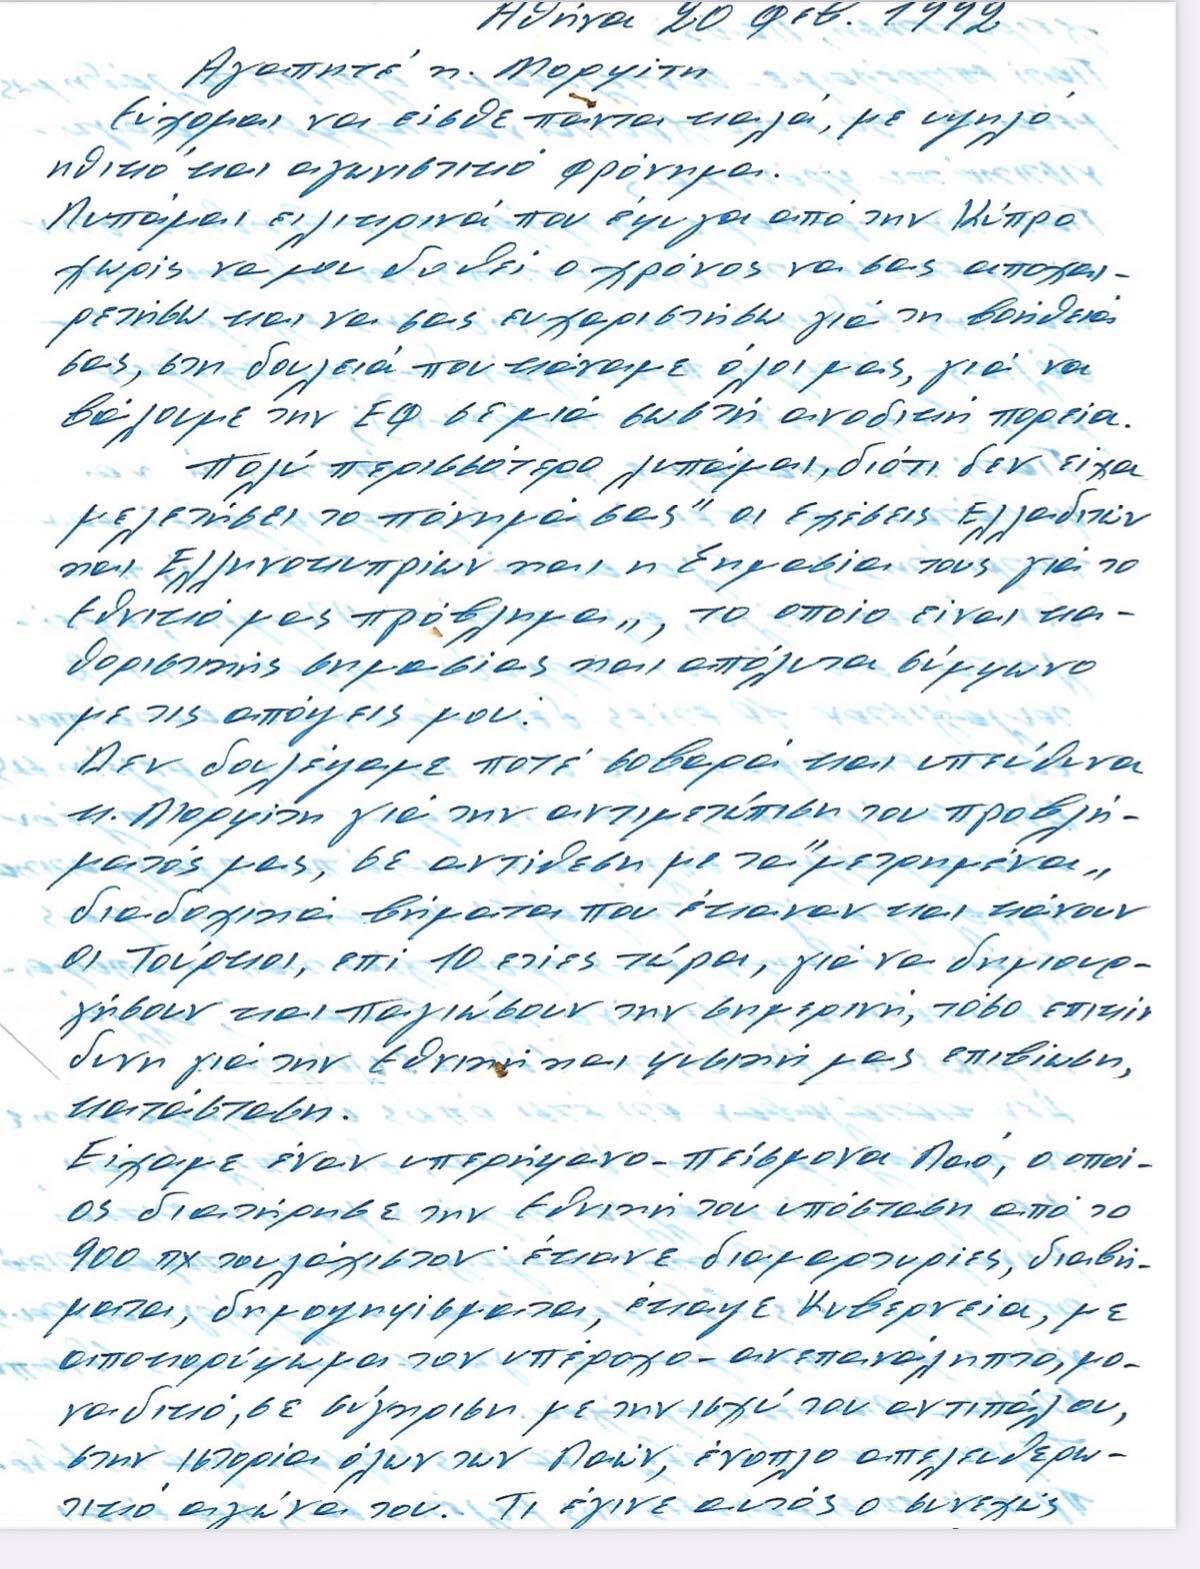 Αθήνα 20 Φεβ. 1992
Αγαπητέ κ. Μορφίτη
Εύχομαι να είσθε πάντα καλά, με υψηλό
ηθικό και αγωνιστικό φρόνημα.
Λυπάμαι ειλικρινά που έφυγα από την Κύπρο
χωρίς να μου δοθεί ο χρόνος να σας αποχαι-
ρετήσω και να σας ευχαριστήσω γιά τη βοήθειά
σας, στη δουλειά που κάναμε όλοι μας, γιά να
βάλουμε την ΕΦ σε μιά σωστή ανοδική πορεία.
Πολύ περισσότερο λυπάμαι, διότι δεν είχα
μελετήσει το πόνημά σας "οι σχέσεις Ελλαδιτών
και Ελληνοκυπρίων και η Σημασία τους γιά το
Εθνικό μας πρόβλημα", το οποίο είναι κα-
θοριστικής σημασίας και απόλυτα σύμφωνο
με τις απόψεις μου.
Δεν δουλέψαμε ποτέ σοβαρά και υπεύθυνα
κ. Μορφίτη γιά την αντιμετώπιση του προβλή-
ματός μας, σε αντίθεση με τα "μετρημένα"
διαδοχικά βήματα που έκαναν και κάνουν
οι Τούρκοι, επί 10 ετίες τώρα, γιά να δημιουρ-
γήσουν και παγιώσουν την σημερινή, τόσο επικίν
δυνη γιά την Εθνική και φυσική μας επιβίωση,
κατάσταση.
Είχαμε έναν υπερήφανο-πείσμονα Λαό, ο οποί-
ος διατήρησε την Εθνική του υπόσταση από το
900 πχ τουλάχιστον· έκανε διαμαρτυρίες, διαβή-
ματα, δημοψηφίσματα, έκαψε Κυβερνεία, με
αποκορύφωμα τον υπέροχο-ανεπανάληπτο, μο-
ναδικό, σε σύγκριση με την ισχύ του αντιπάλου,
στην Ιστορία όλων των Λαών, ένοπλο απελευθερω-
τικό αγώνα του. Τι έγινε αυτός ο συνεχώς